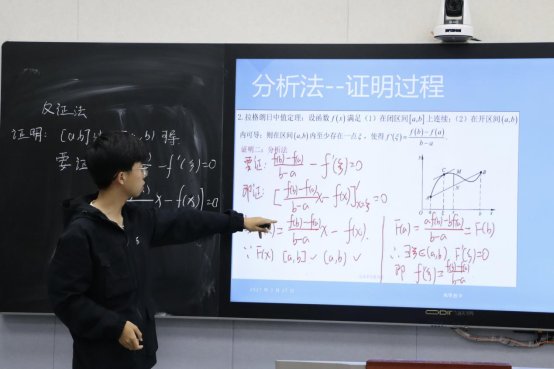 反证法
证明: [a,b]
要证
-f'(ξ)=0
x-f(x)]'=0
分析法--证明过程
2.拉格朗日中值定理:设函数f(x)满足(1)在闭区间[a,b]上连续;(2)在开区间(a,b)
内可导;则在区间(a,b)内至少存在一点ξ,使得f'(ξ)=(f(b)-f(a))/(b-a).
证明二:分析法
要证: (f(b)-f(a))/(b-a) - f'(ξ)=0
即证: [(f(b)-f(a))/(b-a) x - f(x)]'x=ξ =0
(x)= (f(b)-f(a))/(b-a) x - f(x).
∵ F(x) [a,b] ✓ (a,b) ✓
F(a)= (af(b)-bf(a))/(b-a) = F(b)
∴ ∃ξ∈(a,b), F'(ξ)=0
即 f'(ξ)= (f(b)-f(a))/(b-a)